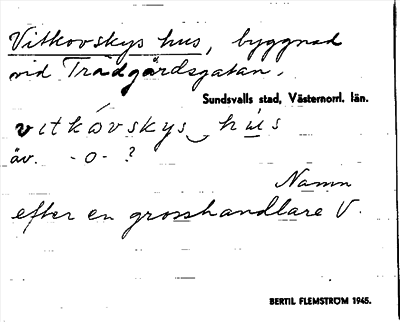 Vitkovskys hus, byggnad
vid Trädgårdsgatan.
Sundsvalls stad, Västernorrl. län.
vitkóvskys hús
äv. -o- ?
Namn
efter en grosshandlare V.
BERTIL FLEMSTRÖM 1945.